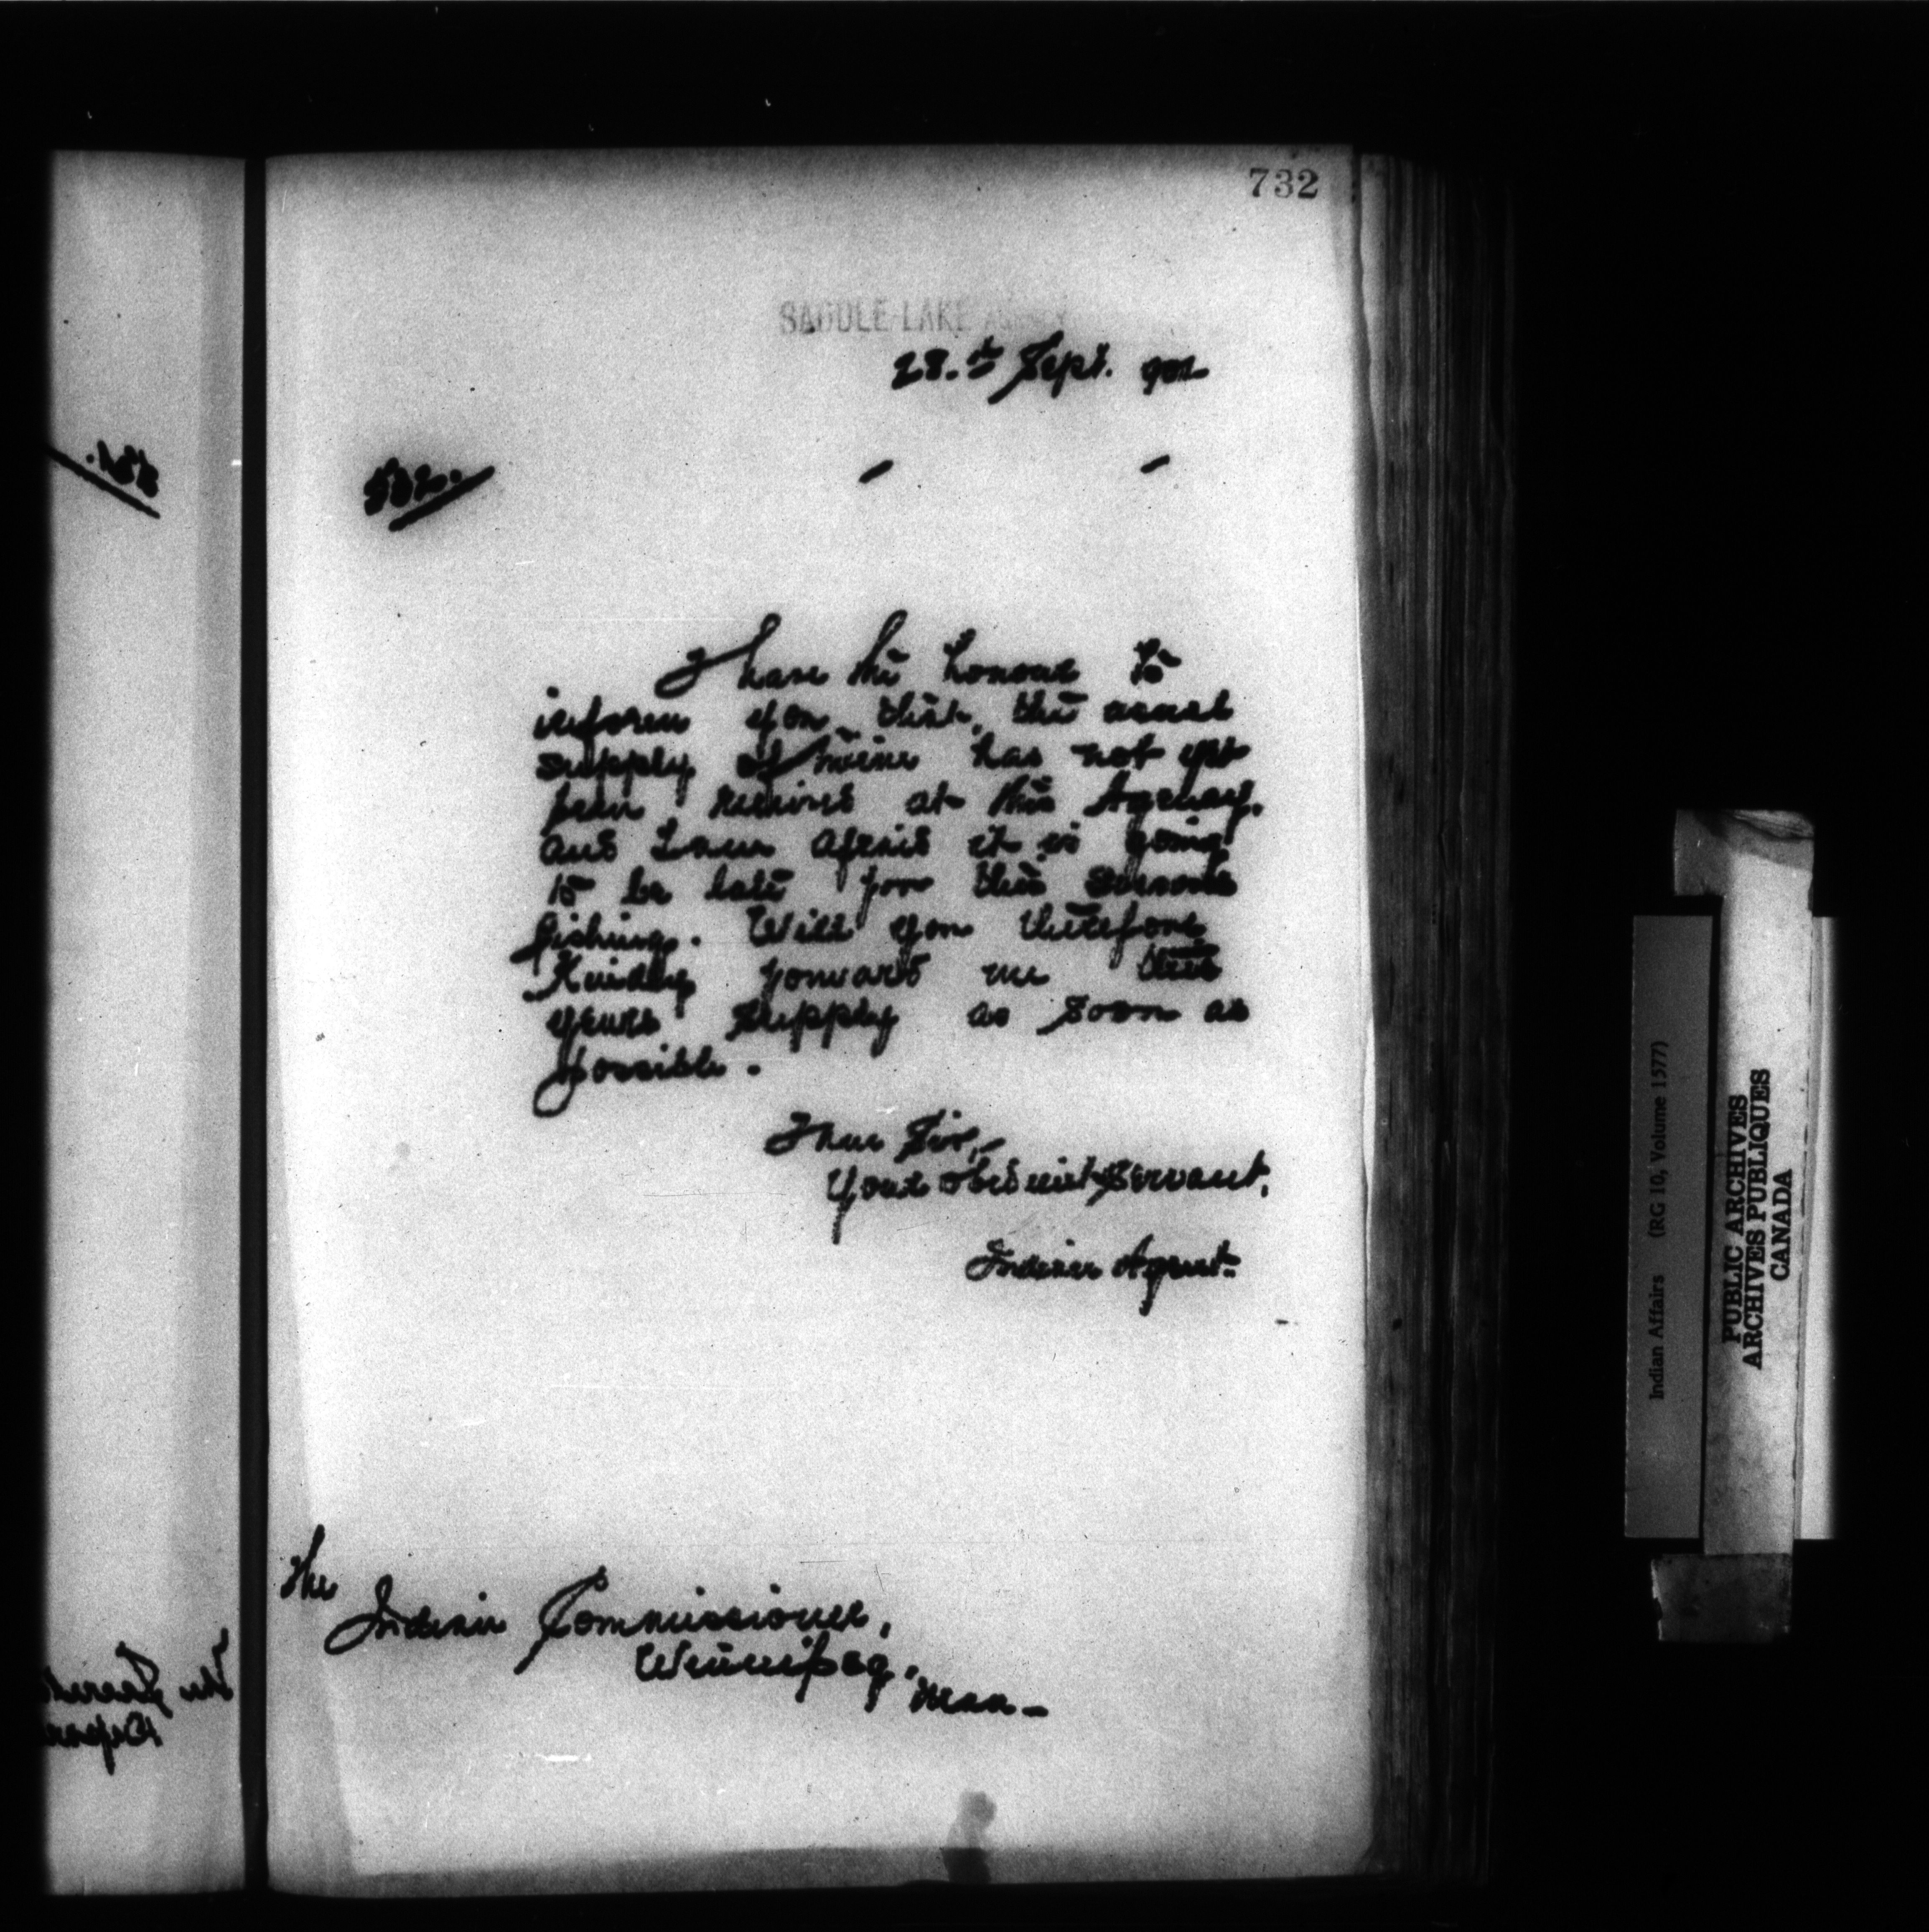 732
SADDLE LAKE AGENCY
28.th Sept. 902
532.
I have the honour to
inform you that, the usual
supply of twine has not yet
been received at this Agency,
and I am afraid it is going
to be late for this seasons
fishing. Will you therefore
Kindly forward me this
years supply as soon as
possible.
I have Sir,
Your obedient Servant,
Indian Agent.
The
Indian Commissioner,
Winnipeg,
Man
531.
Indian Affairs (RG 10, Volume 1577)
PUBLIC ARCHIVES
ARCHIVES PUBLIQUES
CANADA